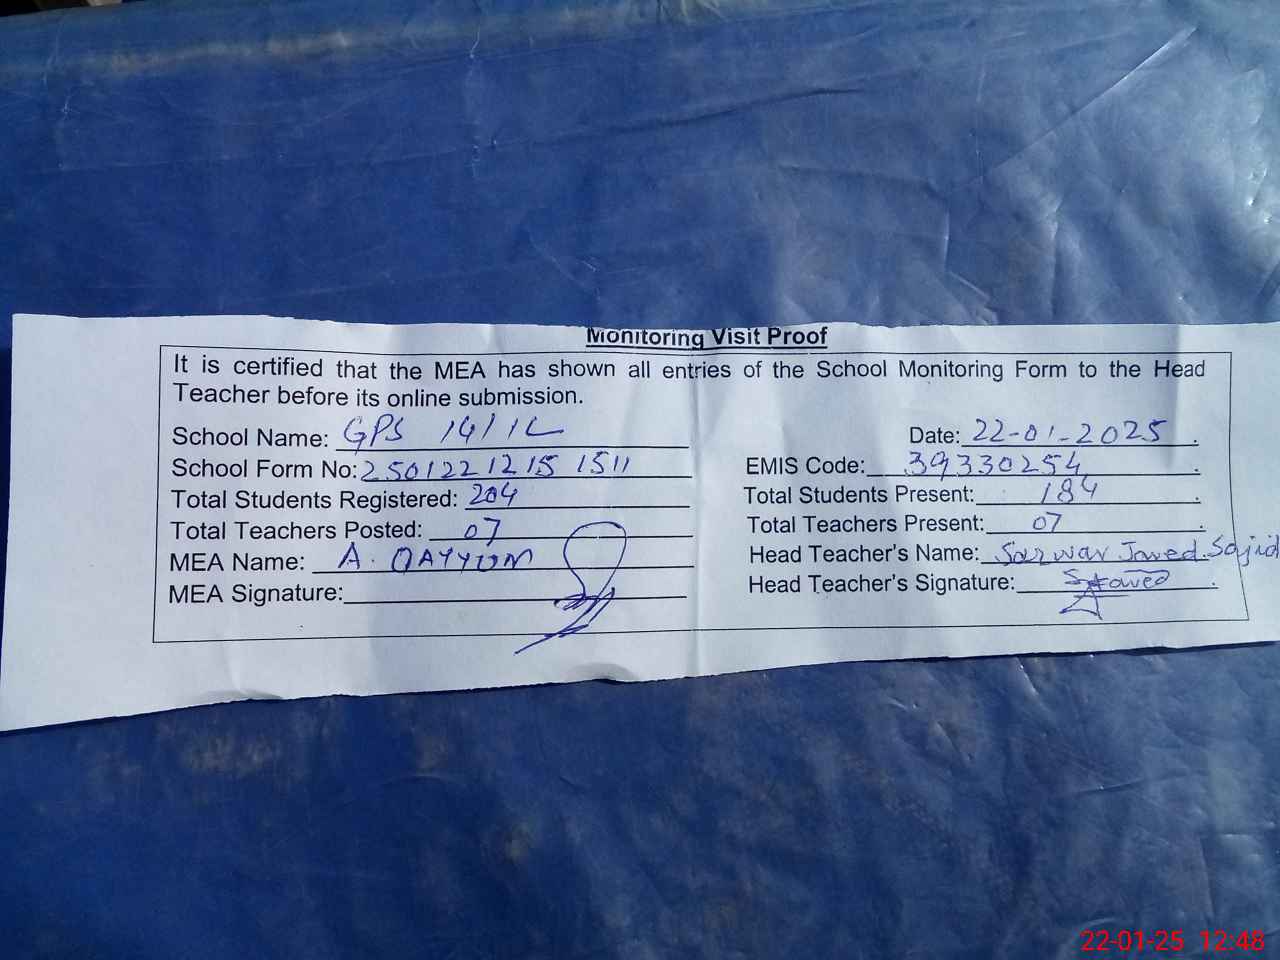 Monitoring Visit Proof
It is certified that the MEA has shown all entries of the School Monitoring Form to the Head
Teacher before its online submission.
School Name: GPS 14/1L Date: 22-01-2025
School Form No: 2501221215 1511 EMIS Code: 39330254
Total Students Registered: 204 Total Students Present: 184
Total Teachers Posted: 07 Total Teachers Present: 07
MEA Name: A. QAYYUM Head Teacher's Name: Sarwar Javed Sajid
MEA Signature: Head Teacher's Signature:
22-01-25 12:48